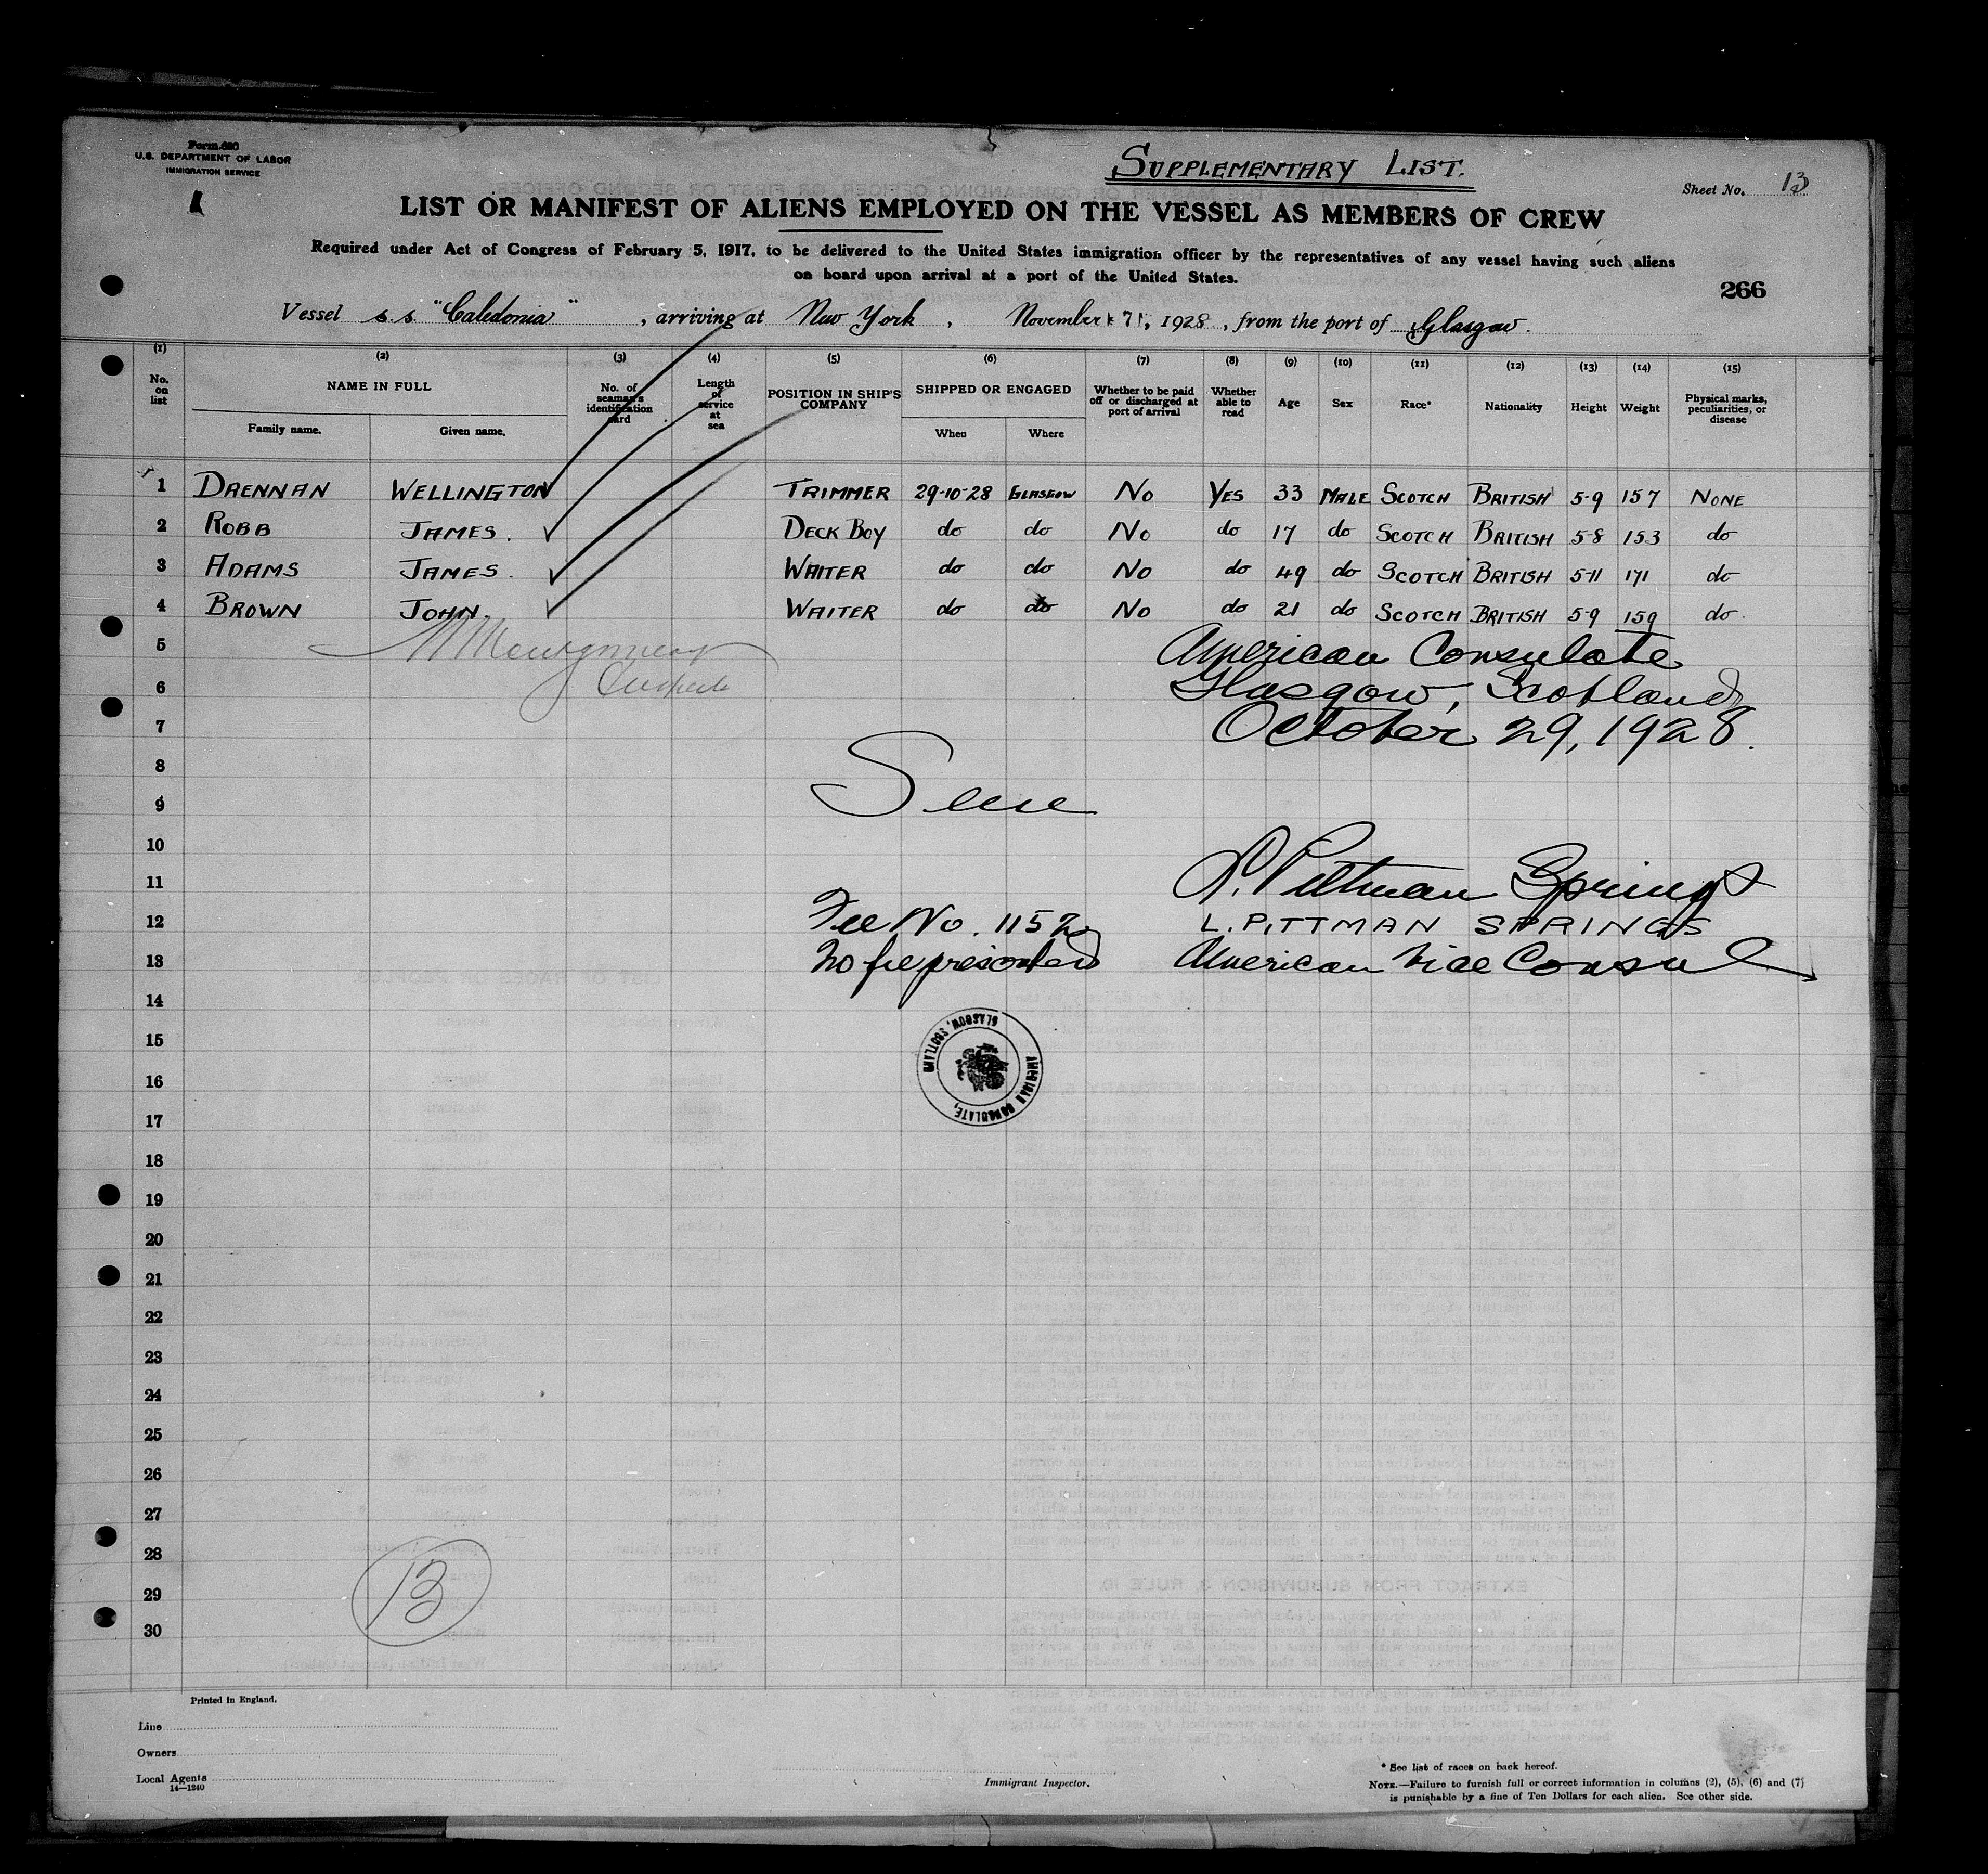 Form 680
U.S. DEPARTMENT OF LABOR
IMMIGRATION SERVICE
SUPPLEMENTARY LIST.
Sheet No. 13
LIST OR MANIFEST OF ALIENS EMPLOYED ON THE VESSEL AS MEMBERS OF CREW
Required under Act of Congress of February 5, 1917, to be delivered to the United States immigration officer by the representatives of any vessel having such aliens
on board upon arrival at a port of the United States.
266
Vessel s.s. "Caledonia", arriving at New York, November 7, 1928, from the port of Glasgow.
(1) (2) (3) (4) (5) (6) (7) (8) (9) (10) (11) (12) (13) (14) (15)
No. on list NAME IN FULL Family name. Given name. No. of seaman's identification card Length of service at sea POSITION IN SHIP'S COMPANY SHIPPED OR ENGAGED When Where Whether to be paid off or discharged at port of arrival Whether able to read Age Sex Race* Nationality Height Weight Physical marks, peculiarities, or disease
1 DRENNAN WELLINGTON TRIMMER 29-10-28 GLASGOW NO YES 33 MALE SCOTCH BRITISH 5-9 157 NONE
2 ROBB JAMES. DECK BOY do do NO do 17 do SCOTCH BRITISH 5-8 153 do
3 ADAMS JAMES. WAITER do do NO do 49 do SCOTCH BRITISH 5-11 171 do
4 BROWN JOHN. WAITER do do NO do 21 do SCOTCH BRITISH 5-9 159 do.
5 Montgomery American Consulate
6 Glasgow, Scotland
7 October 29, 1928.
8
9 Seen
10
11 L. Pittman Springs
12 Fee No. 1152 L. PITTMAN SPRINGS
13 No fee prescribed American Vice Consul
14
15
16
17
18
19
20
21
22
23
24
25
26
27
28
29
30
AMERICAN CONSULATE, GLASGOW, SCOTLAND
13
Printed in England.
Line
Owners
Local Agents
14—1240
Immigrant Inspector.
* See list of races on back hereof.
NOTE.—Failure to furnish full or correct information in columns (2), (5), (6) and (7)
is punishable by a fine of Ten Dollars for each alien. See other side.